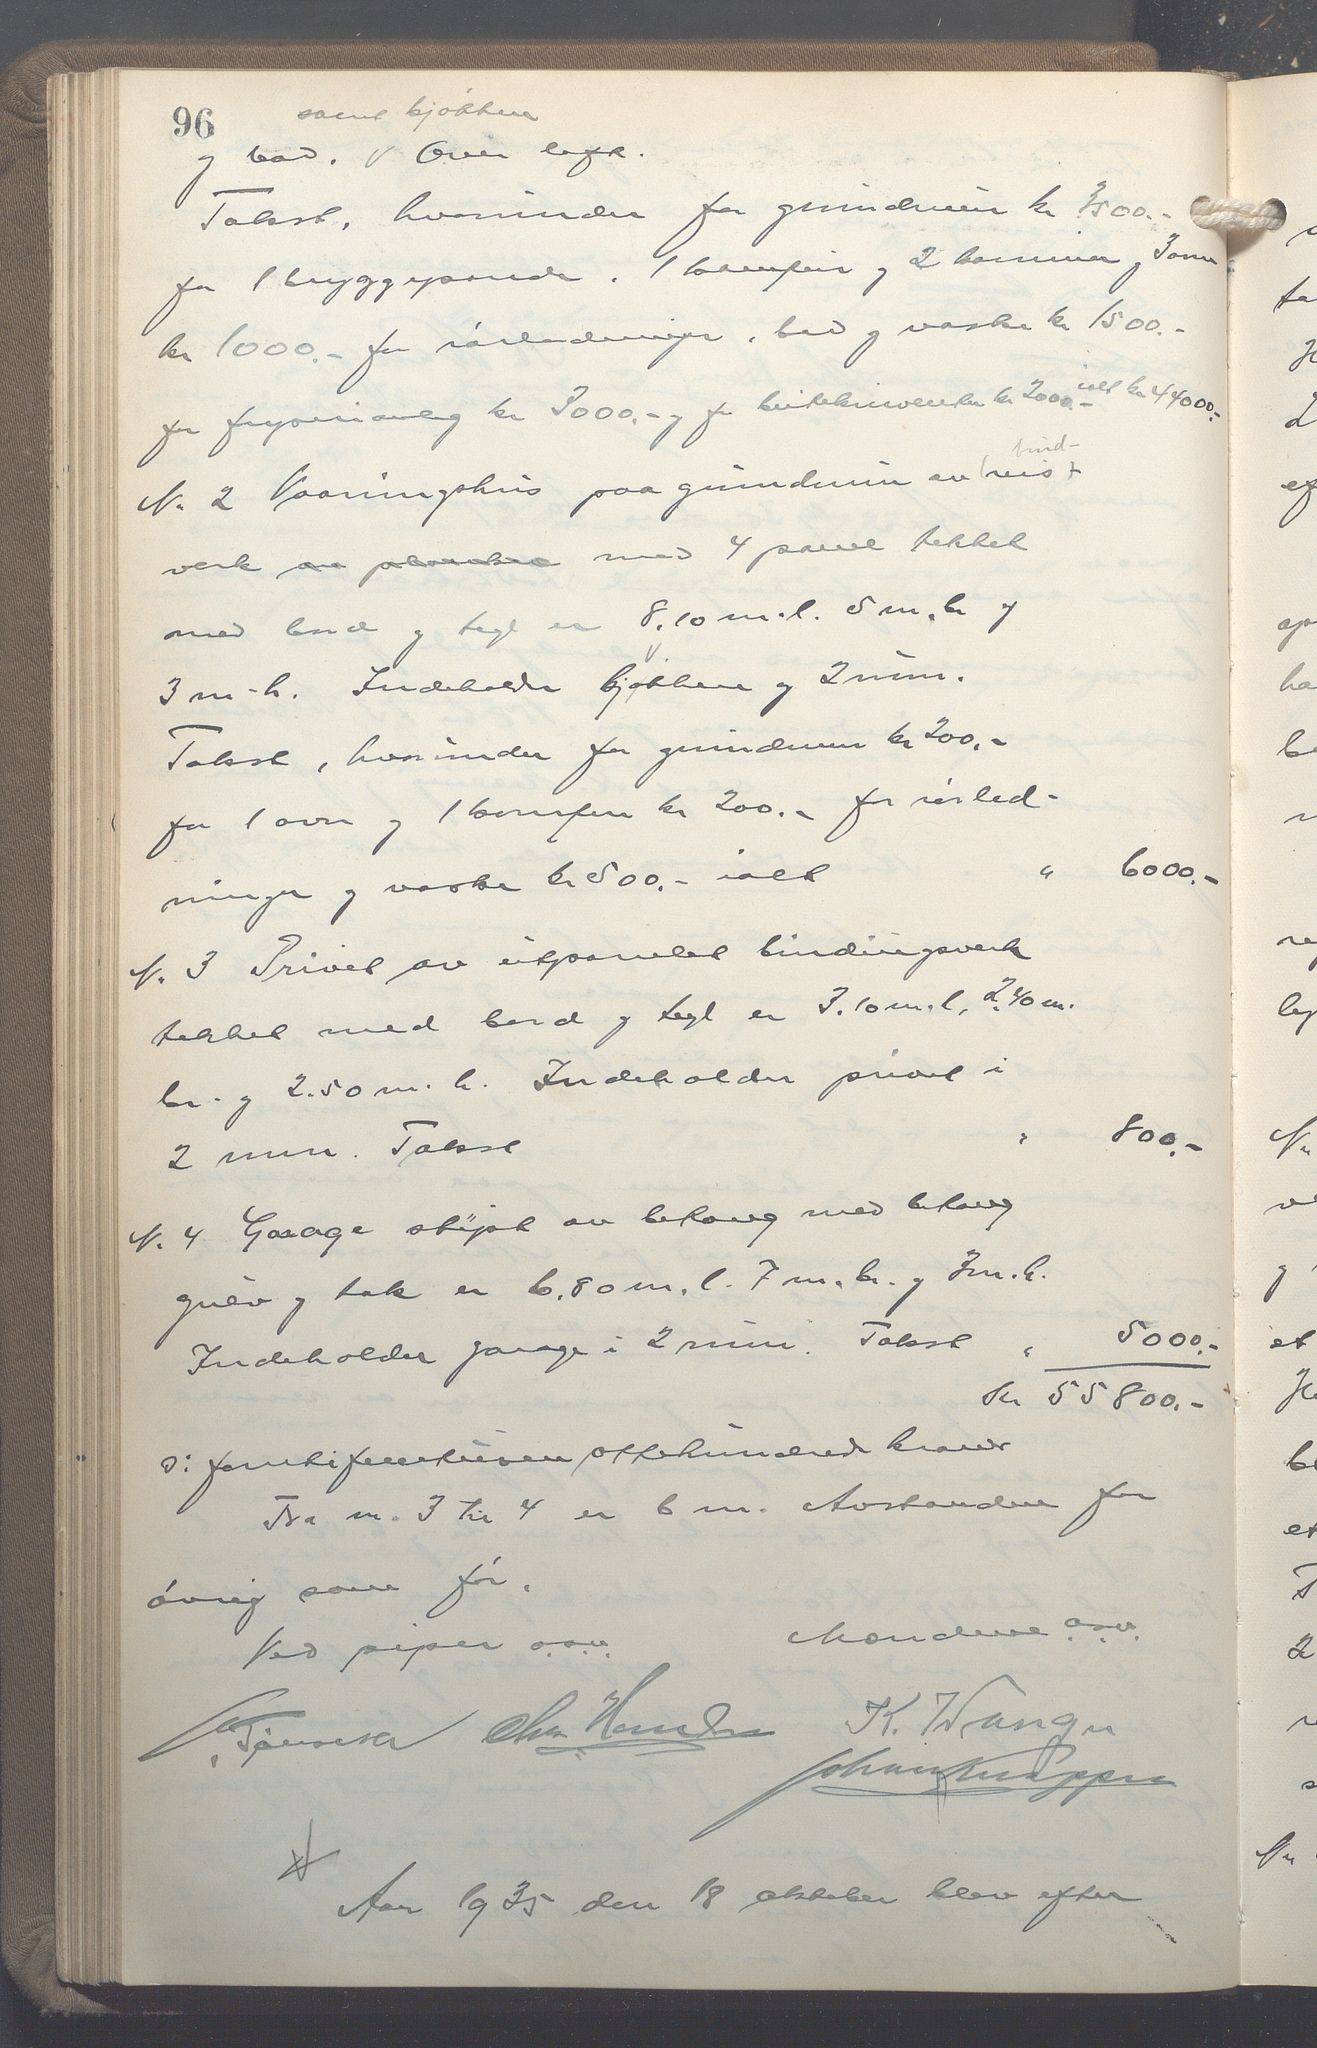 96
samt kjøkken
og bad. Over loft.
Takst, hvorunder for grundmur kr 3500.-
for 1 bryggepande, 1 komfur og 2 kaminer og 3 ovner
kr 1000.- for rørledninger, bad og vasker kr 1500.-
for fryserianlæg kr 3000.- og for butikinventar kr 2000.- ialt kr 44000.-
N. 2 Vaaningshus paa grundmur av (reis) bind-
verk av planker med 4 panel tekket
med bord og tegl er 8,10 m. l. 5 m. br og
3 m. h. Indeholder kjøkken og 2 rum.
Takst, hvorunder for grundmur kr 200.-
for 1 ovn og 1 komfur kr 200.- for rørled-
ninger og vasker kr 500.- ialt " 6000.-
N. 3 Privet av utpanelet bindingsverk
tekket med bord og tegl er 3.10 m. l, 2.40 m.
br. og 2.50 m. h. Indeholder privet i
2 rum. Takst " 800.-
N. 4 Garage støpt av betong med betong
gulv og tak er 6.80 m. l. 7 m. br. og 3 m. h.
Indeholder garage i 2 rum. Takst " 5000.-
Kr 55800.-
ɔ: femtifemtusen ottehundrede kroner
Fra nr. 3 til 4 er 6 m. Avstandene for
øvrig som før.
Ved piper o.s.v. Mændene o.s.v.
K. Wangen
Aar 1935 den 18 oktober blev efter